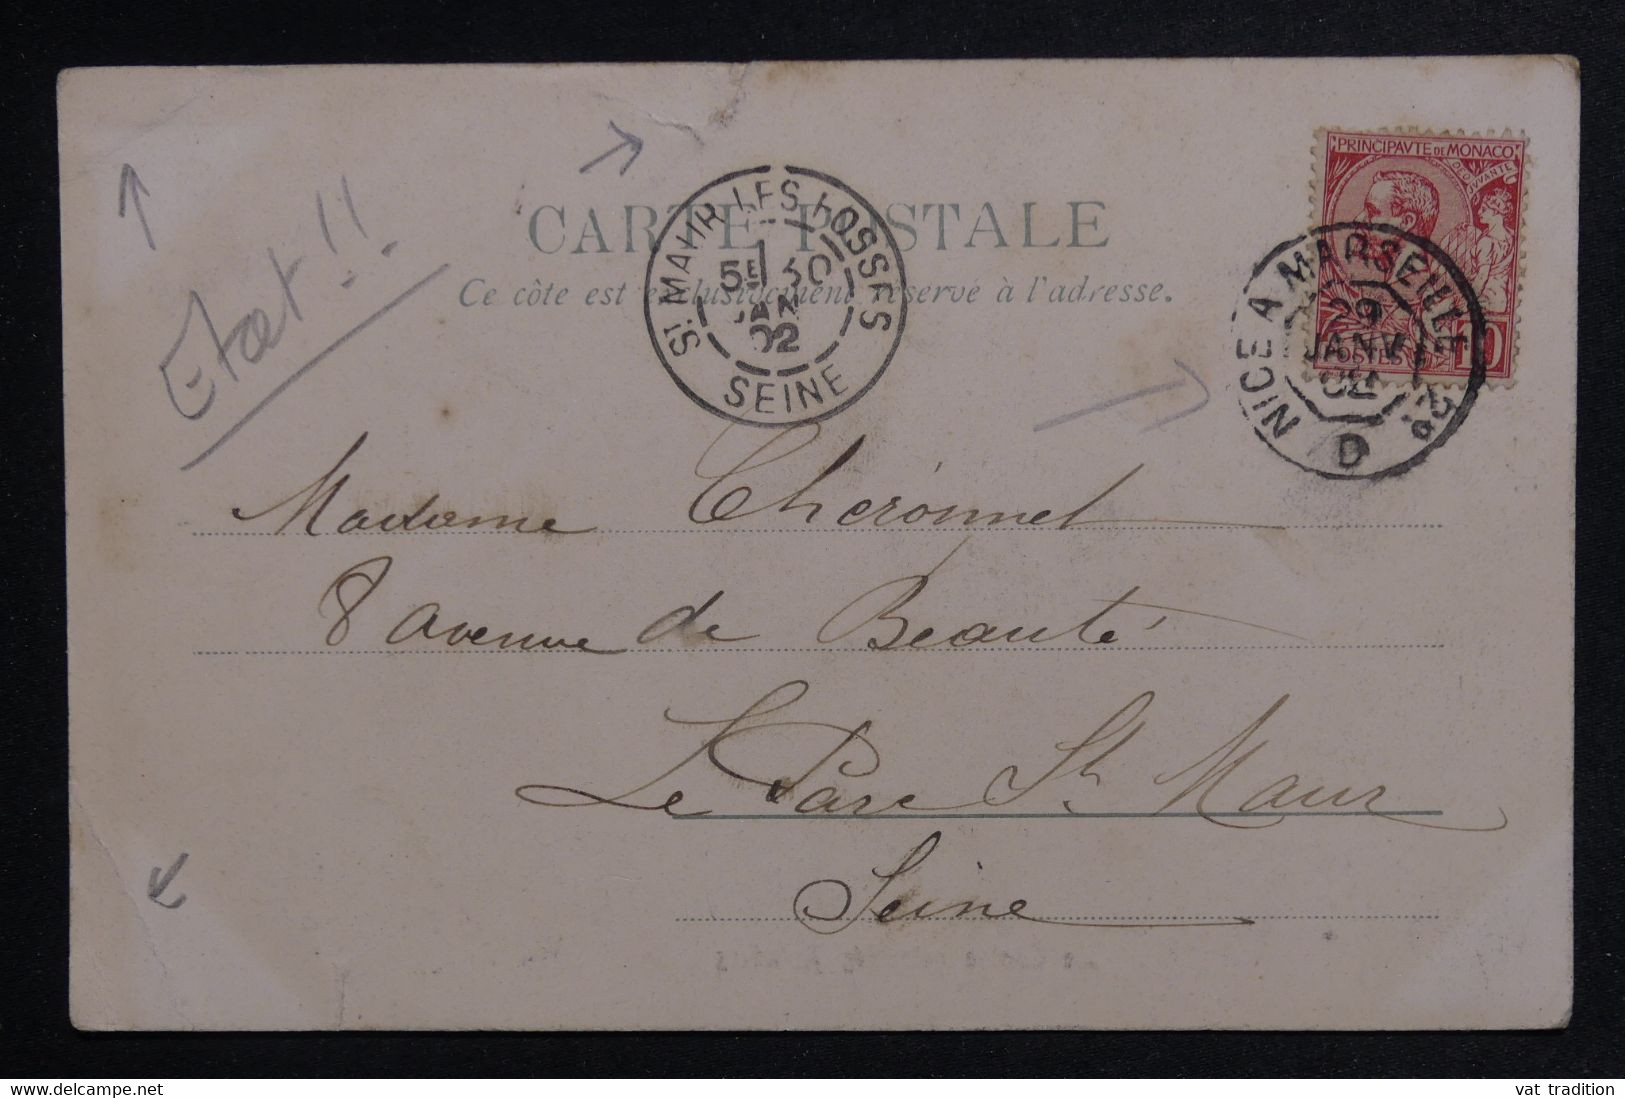 PRINCIPAVTE DE MONACO
DEO JVVANTE
POSTES 10
Etat !!
CARTE POSTALE
Ce côte est exclusivement réservé à l'adresse.
ST. MAUR LES FOSSES
5E 30
JAN
02
SEINE
NICE A MARSEILLE
29
JANV
02
D
Madame Cheronnet
8 avenue de Beauté
Le Parc St Maur
Seine
delcampe.net
vat tradition